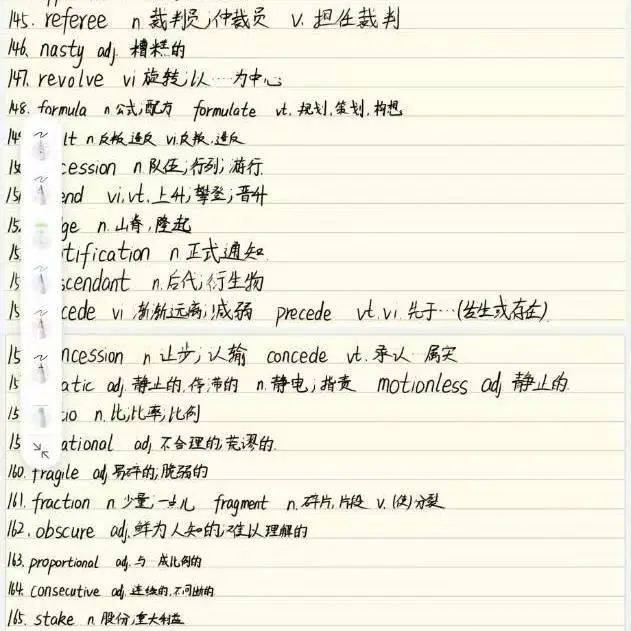 145. referee n.裁判员;仲裁员 v. 担任裁判
146. nasty adj. 糟糕的
147. revolve vi 旋转;以…为中心
148. formula n公式;配方 formulate vt. 规划,策划,构想
lt n反叛,违反 vi.反叛,违反
cession n.队伍;行列;游行.
end vi.vt.上升;攀登;晋升
ge n.山脊,隆起
tification n正式通知
scendant n.后代;衍生物
cede vi 渐渐远离;减弱 precede vt.vi.先于…(发生或存在)
ncession n 让步;认输 concede vt.承认 属实
atic adj 静止的,停滞的 n.静电;指责 motionless adj 静止的
io n.比;比率;比例
ational adj 不合理的,荒谬的.
160. fragile adj 易碎的;脆弱的
161. fraction n 少量;一点儿 fragment n.碎片,片段 v.(使)分裂
162. obscure adj.鲜为人知的;难以理解的
163. proportional adj.与 成比例的
164. consecutive adj.连续的,不间断的
165. stake n 股份;重大利益